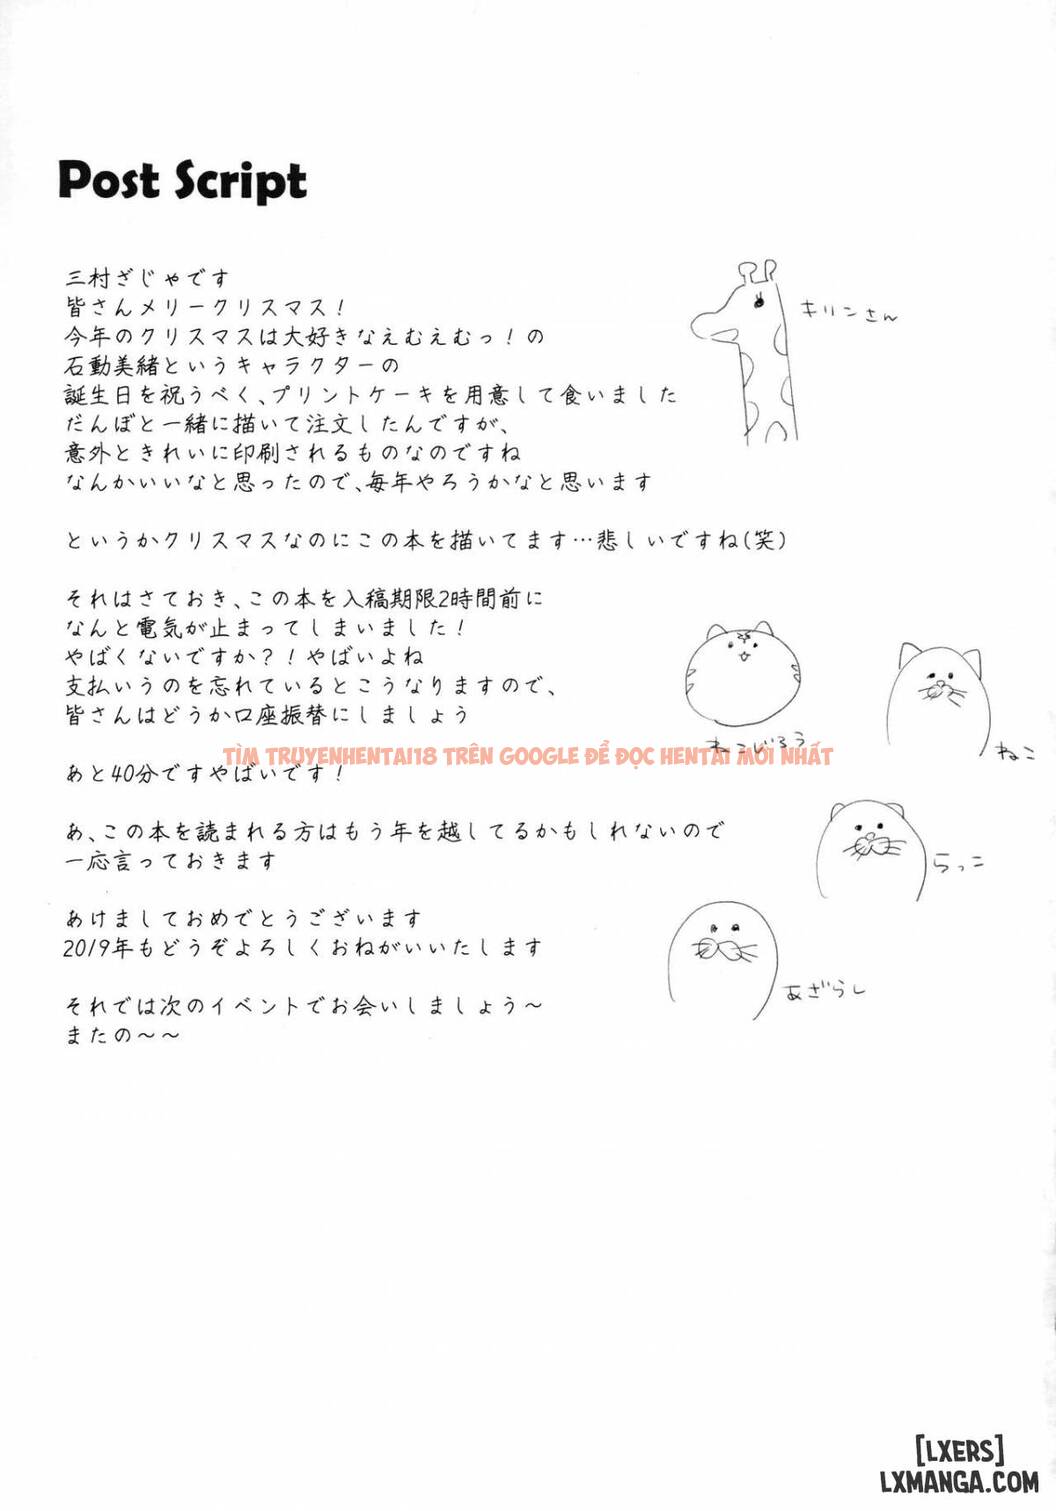 Post Script
三村ざじゃです
皆さんメリークリスマス！
今年のクリスマスは大好きなえむえむっ！の
石動美緒というキャラクターの
誕生日を祝うべく、プリントケーキを用意して食いました
だんぼと一緒に描いて注文したんですが、
意外ときれいに印刷されるものなのですね
なんかいいなと思ったので、毎年やろうかなと思います
というかクリスマスなのにこの本を描いてます…悲しいですね(笑)
それはさておき、この本を入稿期限2時間前に
なんと電気が止まってしまいました！
やばくないですか？！やばいよね
支払いうのを忘れているとこうなりますので、
皆さんはどうか口座振替にしましょう
あと40分ですやばいです！
あ、この本を読まれる方はもう年を越してるかもしれないので
一応言っておきます
あけましておめでとうございます
2019年もどうぞよろしくおねがいいたします
それでは次のイベントでお会いしましょう～
またの～～
キリンさん
ねこじろう
ねこ
らっこ
あざらし
TÌM TRUYENHENTAI18 TRÊN GOOGLE ĐỂ ĐỌC HENTAI MỚI NHẤT
[LXERS]
LXMANGA.COM